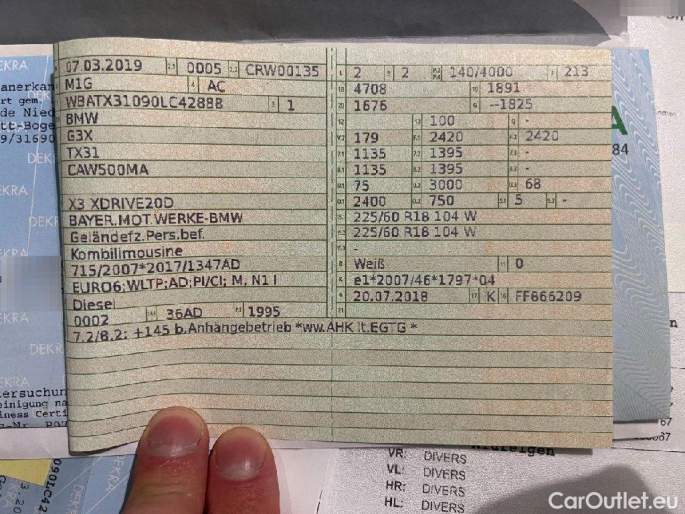 07.03.2019 0005 CRW00135 2 2 140/4000 213
M1G AC 4708 1891
WBATX31090LC42888 1 1676 --1825
BMW 100 -
G3X 179 2420 2420
TX31 1135 1395 -
CAW500MA 1135 1395 -
75 3000 68
X3 XDRIVE20D 2400 750 5 -
BAYER.MOT.WERKE-BMW 225/60 R18 104 W
Geländefz.Pers.bef. 225/60 R18 104 W
Kombilimousine -
715/2007*2017/1347AD Weiß 0
EURO6;WLTP;AD;PI/CI; M, N1 I e1*2007/46*1797*04
Diesel 20.07.2018 K FF866209
0002 36AD 1995
7.2/8.2: +145 b.Anhängebetrieb *ww.AHK lt.EGTG *
DEKRA
de Nied
tt-Boge
9/31690
84
DEKRA
DEKRA
DEKRA
tersuchun
einigung na
ness Certi
67
VR: DIVERS
VL: DIVERS
HR: DIVERS
HL: DIVERS
CarOutlet.eu